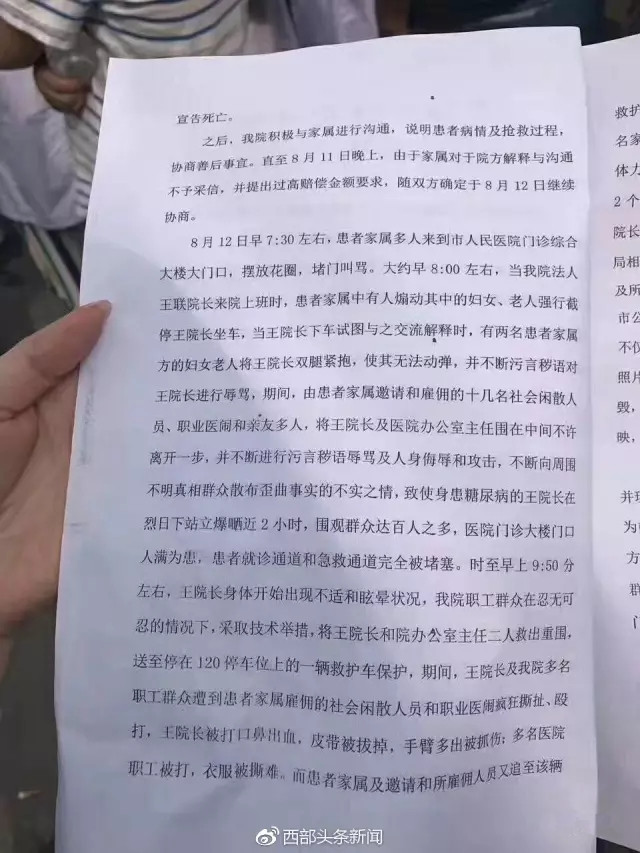 宣告死亡。
之后，我院积极与家属进行沟通，说明患者病情及抢救过程，
协商善后事宜。直至8月11日晚上，由于家属对于院方解释与沟通
不予采信，并提出过高赔偿金额要求，随双方确定于8月12日继续
协商。
8月12日早7:30左右，患者家属多人来到市人民医院门诊综合
大楼大门口，摆放花圈，堵门叫骂。大约早8:00左右，当我院法人
王联院长来院上班时，患者家属中有人煽动其中的妇女、老人强行截
停王院长坐车，当王院长下车试图与之交流解释时，有两名患者家属
方的妇女老人将王院长双腿紧抱，使其无法动弹，并不断污言秽语对
王院长进行辱骂，期间，由患者家属邀请和雇佣的十几名社会闲散人
员、职业医闹和亲友多人，将王院长及医院办公室主任围在中间不许
离开一步，并不断进行污言秽语辱骂及人身侮辱和攻击，不断向周围
不明真相群众散布歪曲事实的不实之情，致使身患糖尿病的王院长在
烈日下站立爆嗮近2小时，围观群众达百人之多，医院门诊大楼门口
人满为患，患者就诊通道和急救通道完全被堵塞。时至早上9:50分
左右，王院长身体开始出现不适和眩晕状况，我院职工群众在忍无可
忍的情况下，采取技术举措，将王院长和院办公室主任二人救出重围，
送至停在120停车位上的一辆救护车保护，期间，王院长及我院多名
职工群众遭到患者家属雇佣的社会闲散人员和职业医闹疯狂撕扯、殴
打，王院长被打口鼻出血，皮带被拔掉，手臂多出被抓伤；多名医院
职工被打，衣服被撕难。而患者家属及邀请和所雇佣人员又追至该辆
救护
名家
体力
2个
院长
局相
及所
市公
不仅
照片
毁，
映，
并玗
为
方
群
门
西部头条新闻